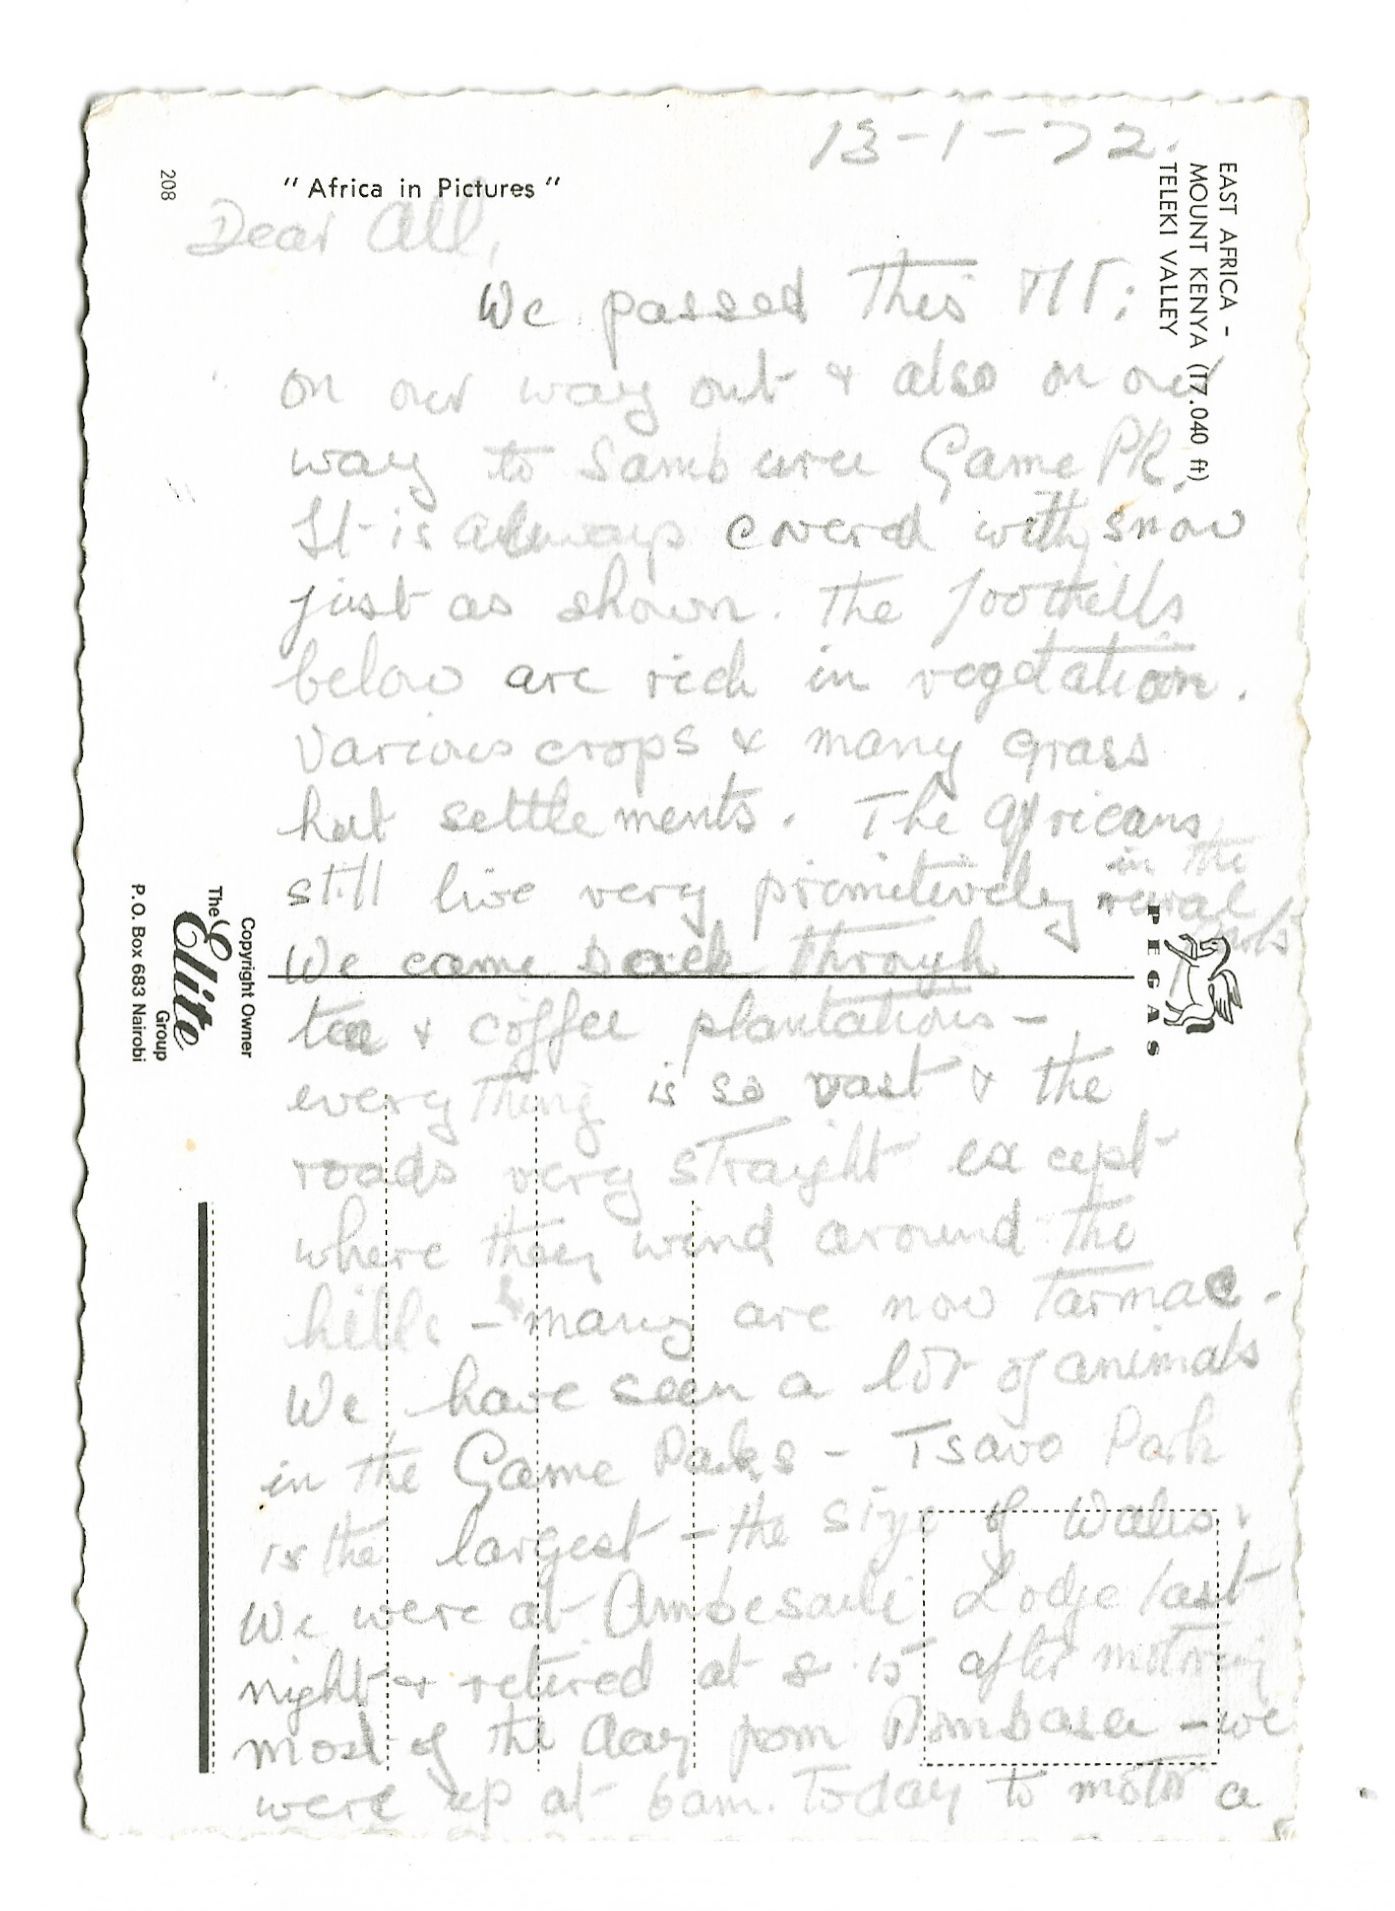 13-1-72.
208
"Africa in Pictures"
EAST AFRICA -
MOUNT KENYA (17.040 ft)
TELEKI VALLEY
Dear All,
We passed this Mt:
on our way out & also on our
way to Samburu Game Pk.
It is always covered with snow
just as shown. The foothills
below are rich in vegetation.
Various crops & many grass
hut settlements. The Africans
still live very primitively in the
rural
We came back through
tea & coffee plantations -
everything is so vast & the
roads very straight except
where they wind around the
hills - many are now tarmac.
We have seen a lot of animals
in the Game Parks - Tsavo Park
is the largest - the size of Wales.
We were at Ambesaili Lodge last
night & retired at 8.15 after motoring
most of the day from Mombasa - we
were up at 6am. Today to motor a
PEGAS
Copyright Owner
The Elite
Group
P.O. Box 683 Nairobi